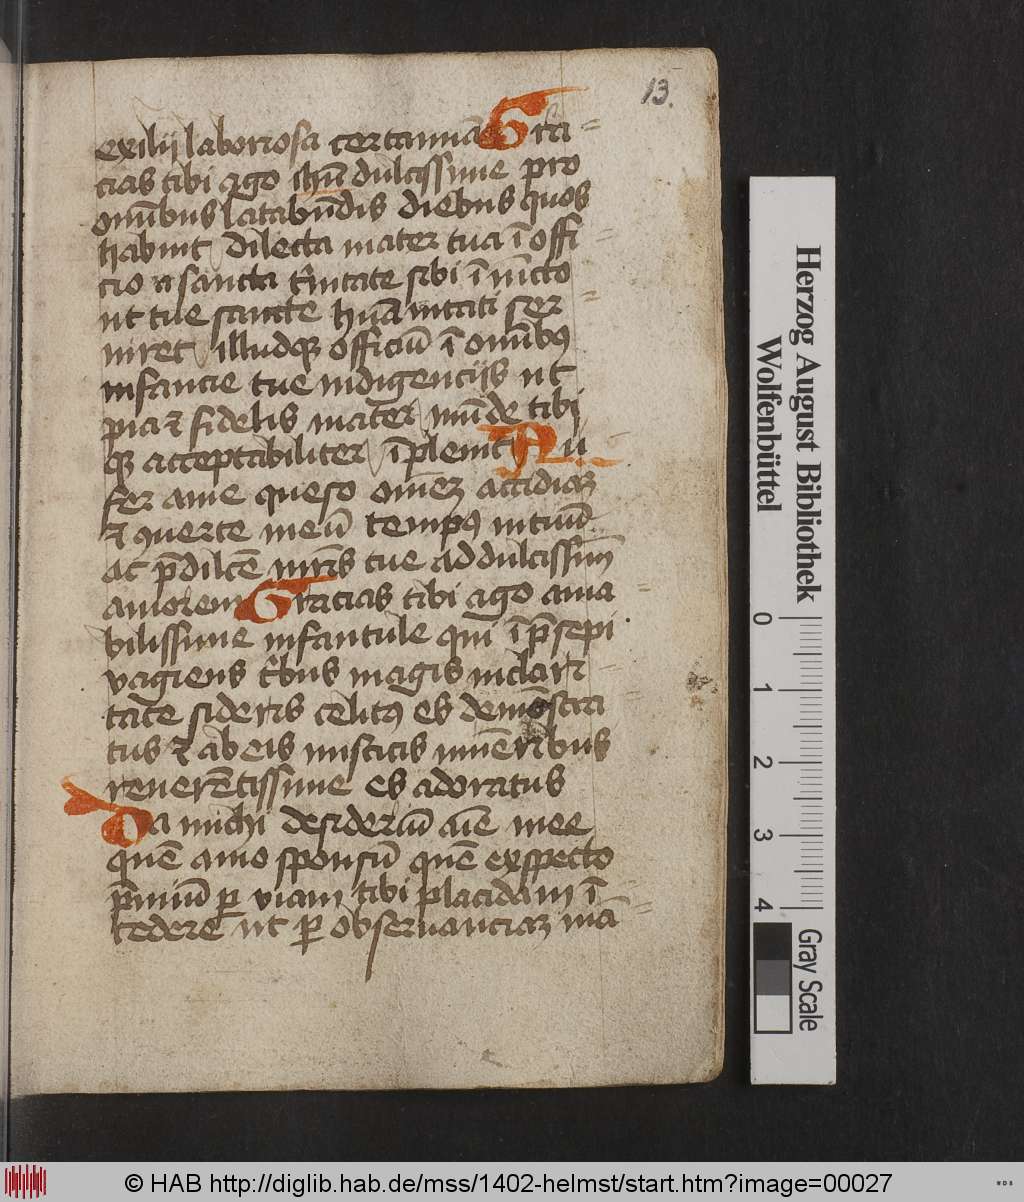 13.
exilij laboriosa certamīa Gra=
cias tibi ago ihū dulcissime pro
om̄ibus latabūdis diebus quos
habuit dilecta mater tua ī offi=
cio a sancta tⁱnitate sibi ī iūcto
ut tue sancte hūanitati ser=
uiret illudqꝫ officiū ī om̄ibꝰ
infancie tue indigencijs ut
pia et fidelis mater mūde tibi
qꝫ acceptabiliter īpleuit Au
fer a me queso om̄em accidiaꝫ
et querte meū tempus
ac p̄dilcē mr̄is tue ad dulcissimū
amorem Gracias tibi ago ama=
bilissime infantule qui ī p̄sepi
vagiens tⁱbus magis
tate sideris celitꝰ es demōstra=
tus et ab eis misticis muneribus
reuerētissime es adoratus
Da michi desideriū aīe mee
quē amo sponsū quē exspecto
p̄miū ꝑ viam tibi placidam ī=
cedere ut ꝑ obseruanciaꝫ mā=
Herzog August Bibliothek
Wolfenbüttel
0 1 2 3 4
Gray Scale
© HAB http://diglib.hab.de/mss/1402-helmst/start.htm?image=00027